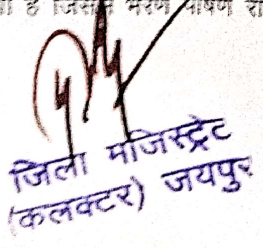 है जिसमें भरण पोषण
जिला मजिस्ट्रेट
(कलक्टर) जयपुर